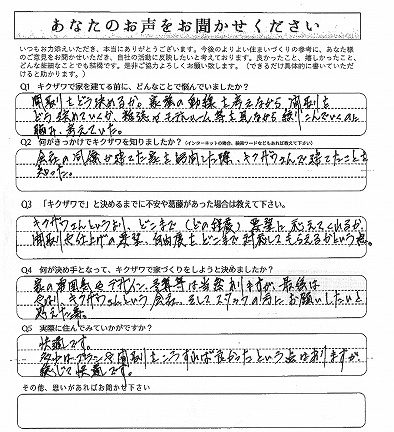 あなたのお声をお聞かせください
いつもお力添えいただき、本当にありがとうございます。今後のよりよい住まいづくりの参考に、あなた様
のご意見をお聞かせいただき、自社の活動に反映したいと考えております。良かったこと、嬉しかったこと、
どんな些細なことでも結構です。是非ご協力よろしくお願い致します。(できるだけ具体的に書いていただ
けると助かります。)
Q1 キクザワで家を建てる前に、どんなことで悩んでいましたか?
間取りをどう決めるか。家事の動線も考えながら間取りを
どう決めていくか、
悩み、考えていた。
Q2 何がきっかけでキクザワを知りましたか?(インターネットの場合、検索ワードなどもあれば教えて下さい)
会社の同僚が建てた家を訪問した際、キクザワさんで建てたことを
知った。
Q3 「キクザワで」と決めるまでに不安や葛藤があった場合は教えて下さい。
キクザワさんというより、どこまで(どの程度)要望に応えてくれるか、
間取りや仕上げの要望、自由度もどこまで対応してもらえるかという点。
Q4 何が決め手となって、キクザワで家づくりをしようと決めましたか?
家の雰囲気やデザイン、予算等は当然ありますが、最後は
やはり、キクザワさんという会社、そしてスタッフの方にお願いしたいと
思えた事。
Q5 実際に住んでみていかがですか?
快適です。
多少はプランや間取りをこうすれば良かったという点はありますが
総じて快適です。
その他、思いがあればお聞かせ下さい